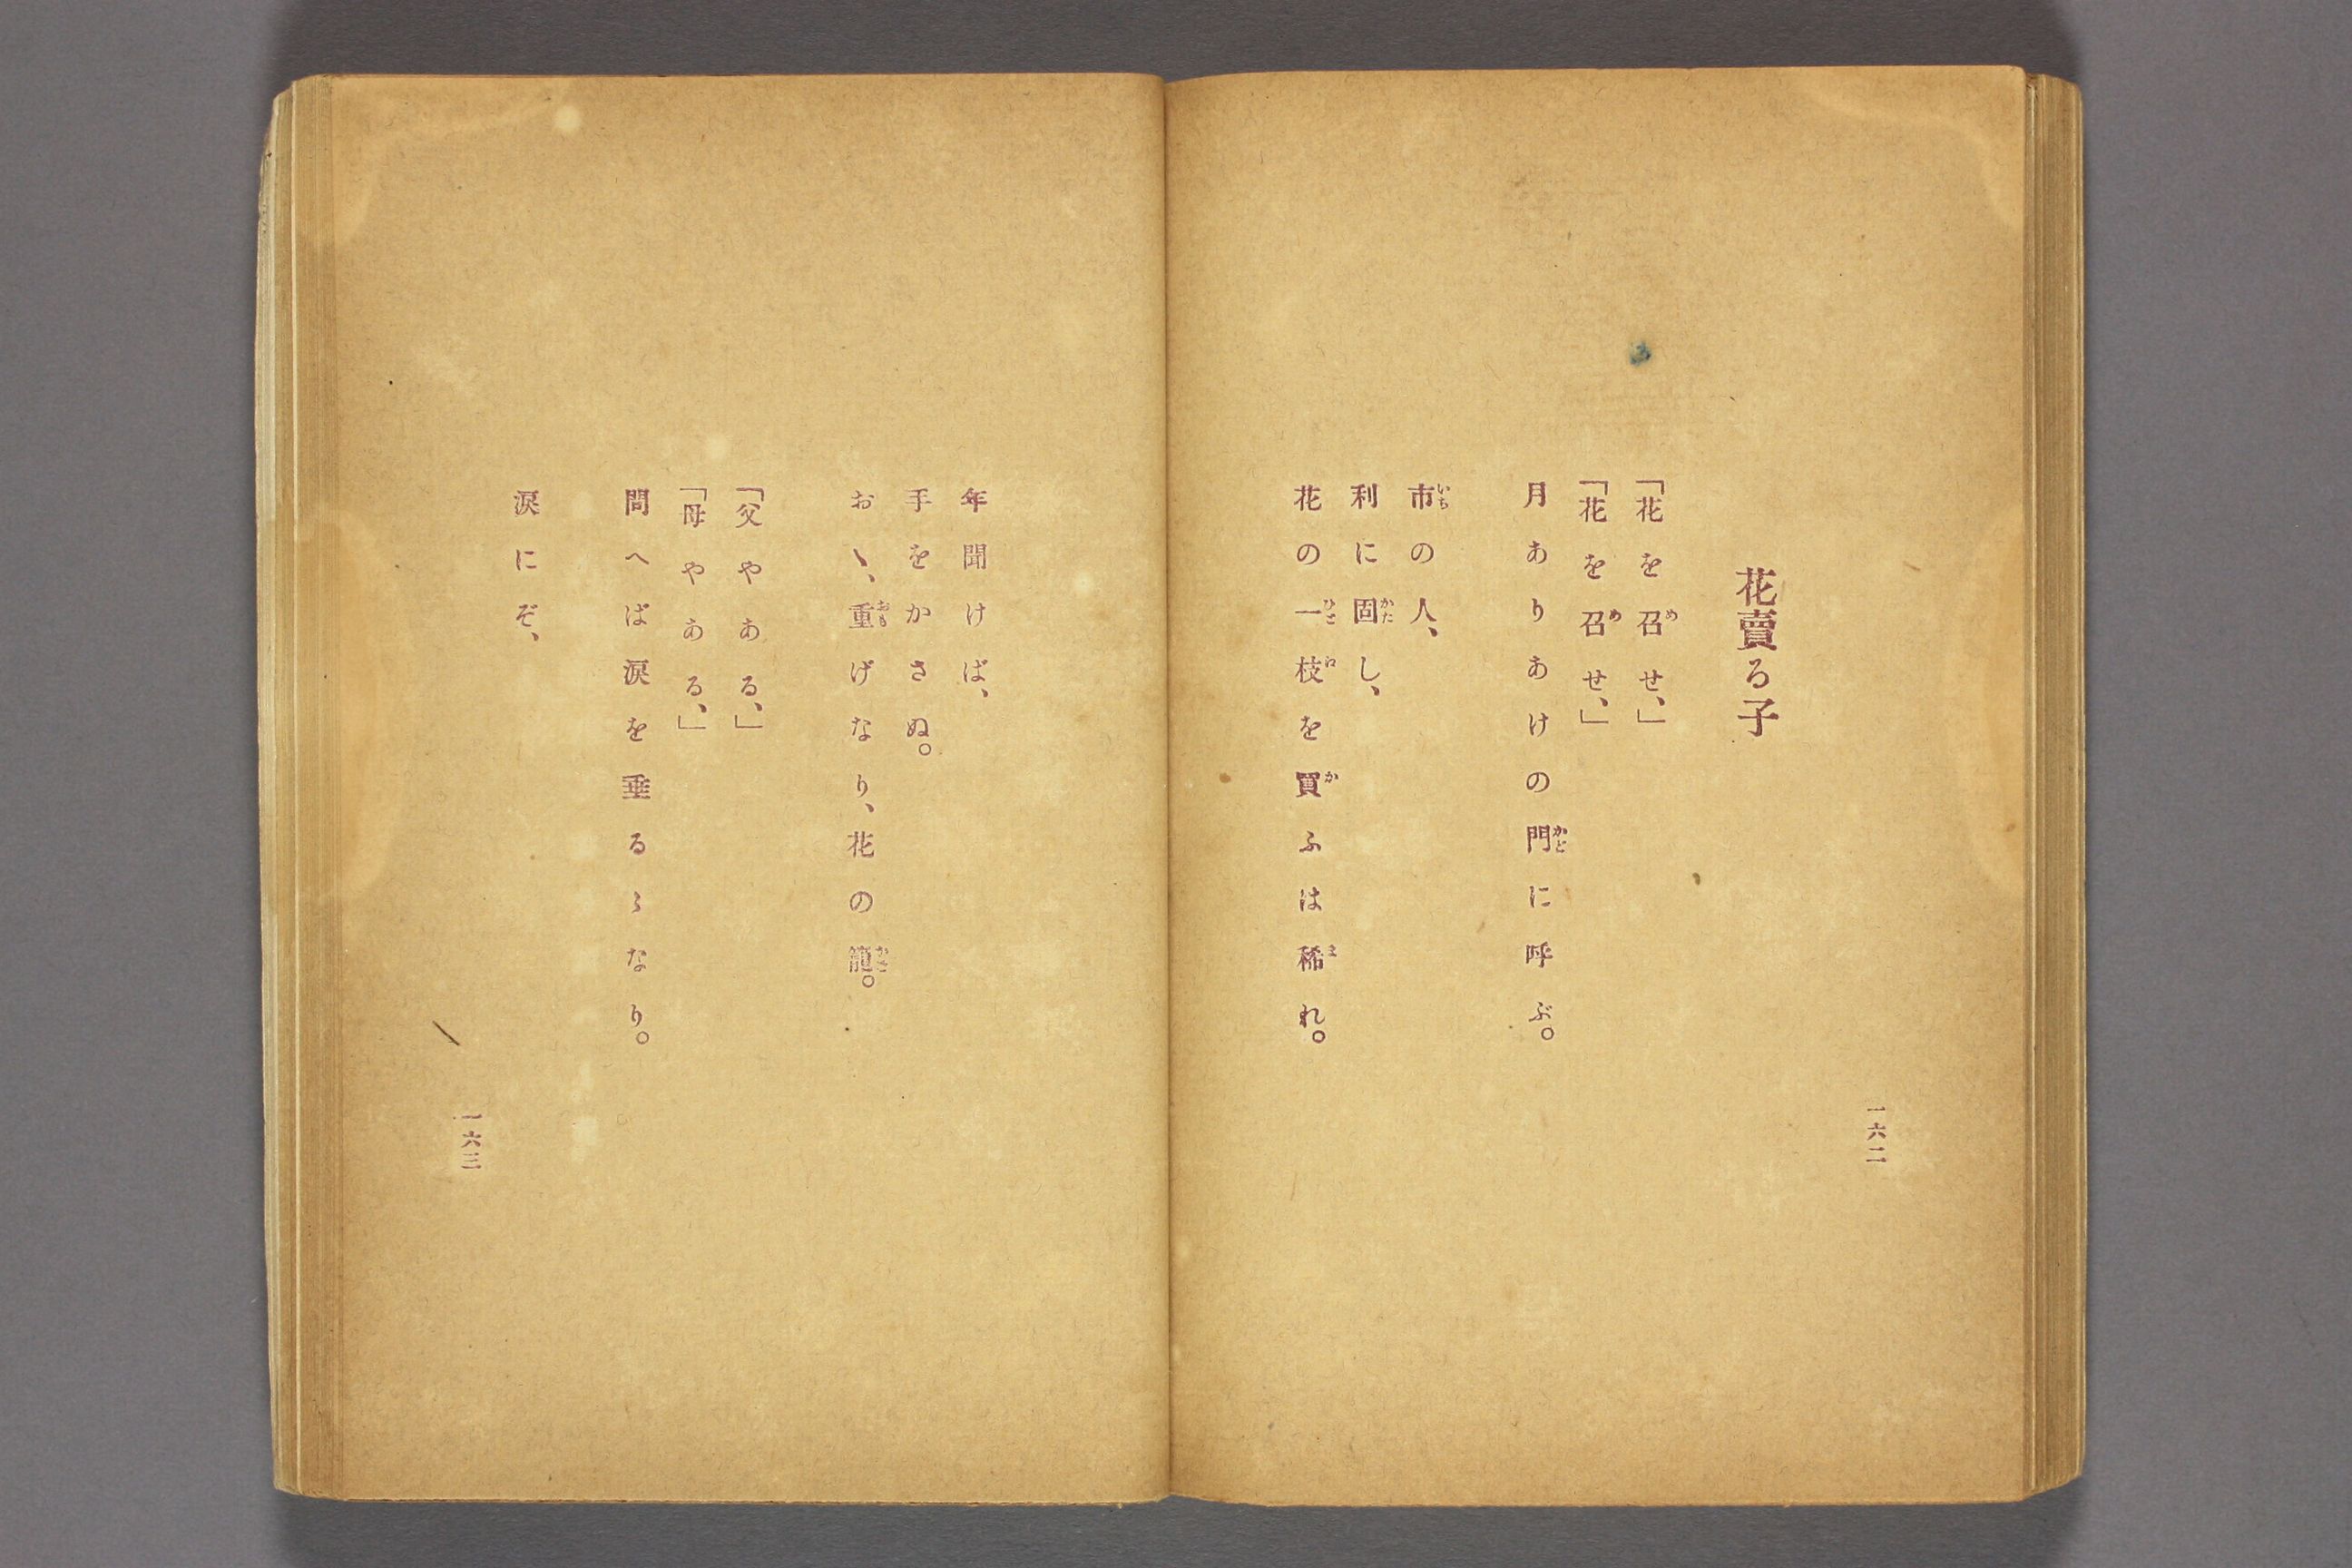 一六二
花賣る子
「花を召せ、」
「花を召せ、」
月ありあけの門に呼ぶ。
市の人、
利に固し、
花の一枝を買ふは稀れ。
年聞けば、
手をかさぬ。
おゝ、重げなり、花の籠。
「父やある、」
「母やある、」
問へば涙を垂るゝなり。
涙にぞ、
一六三